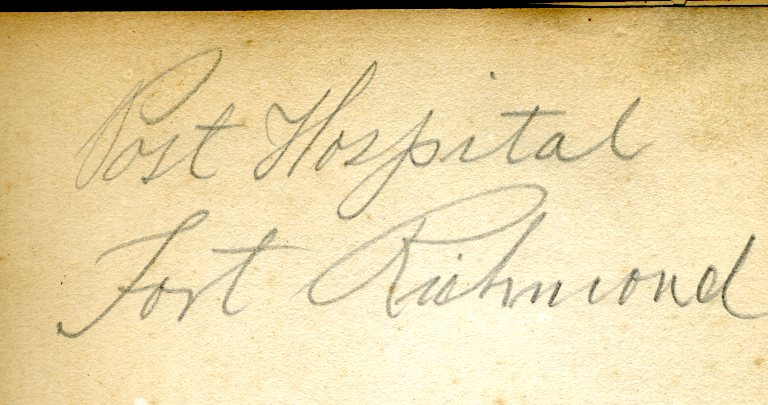 Post Hospital
Fort Richmond